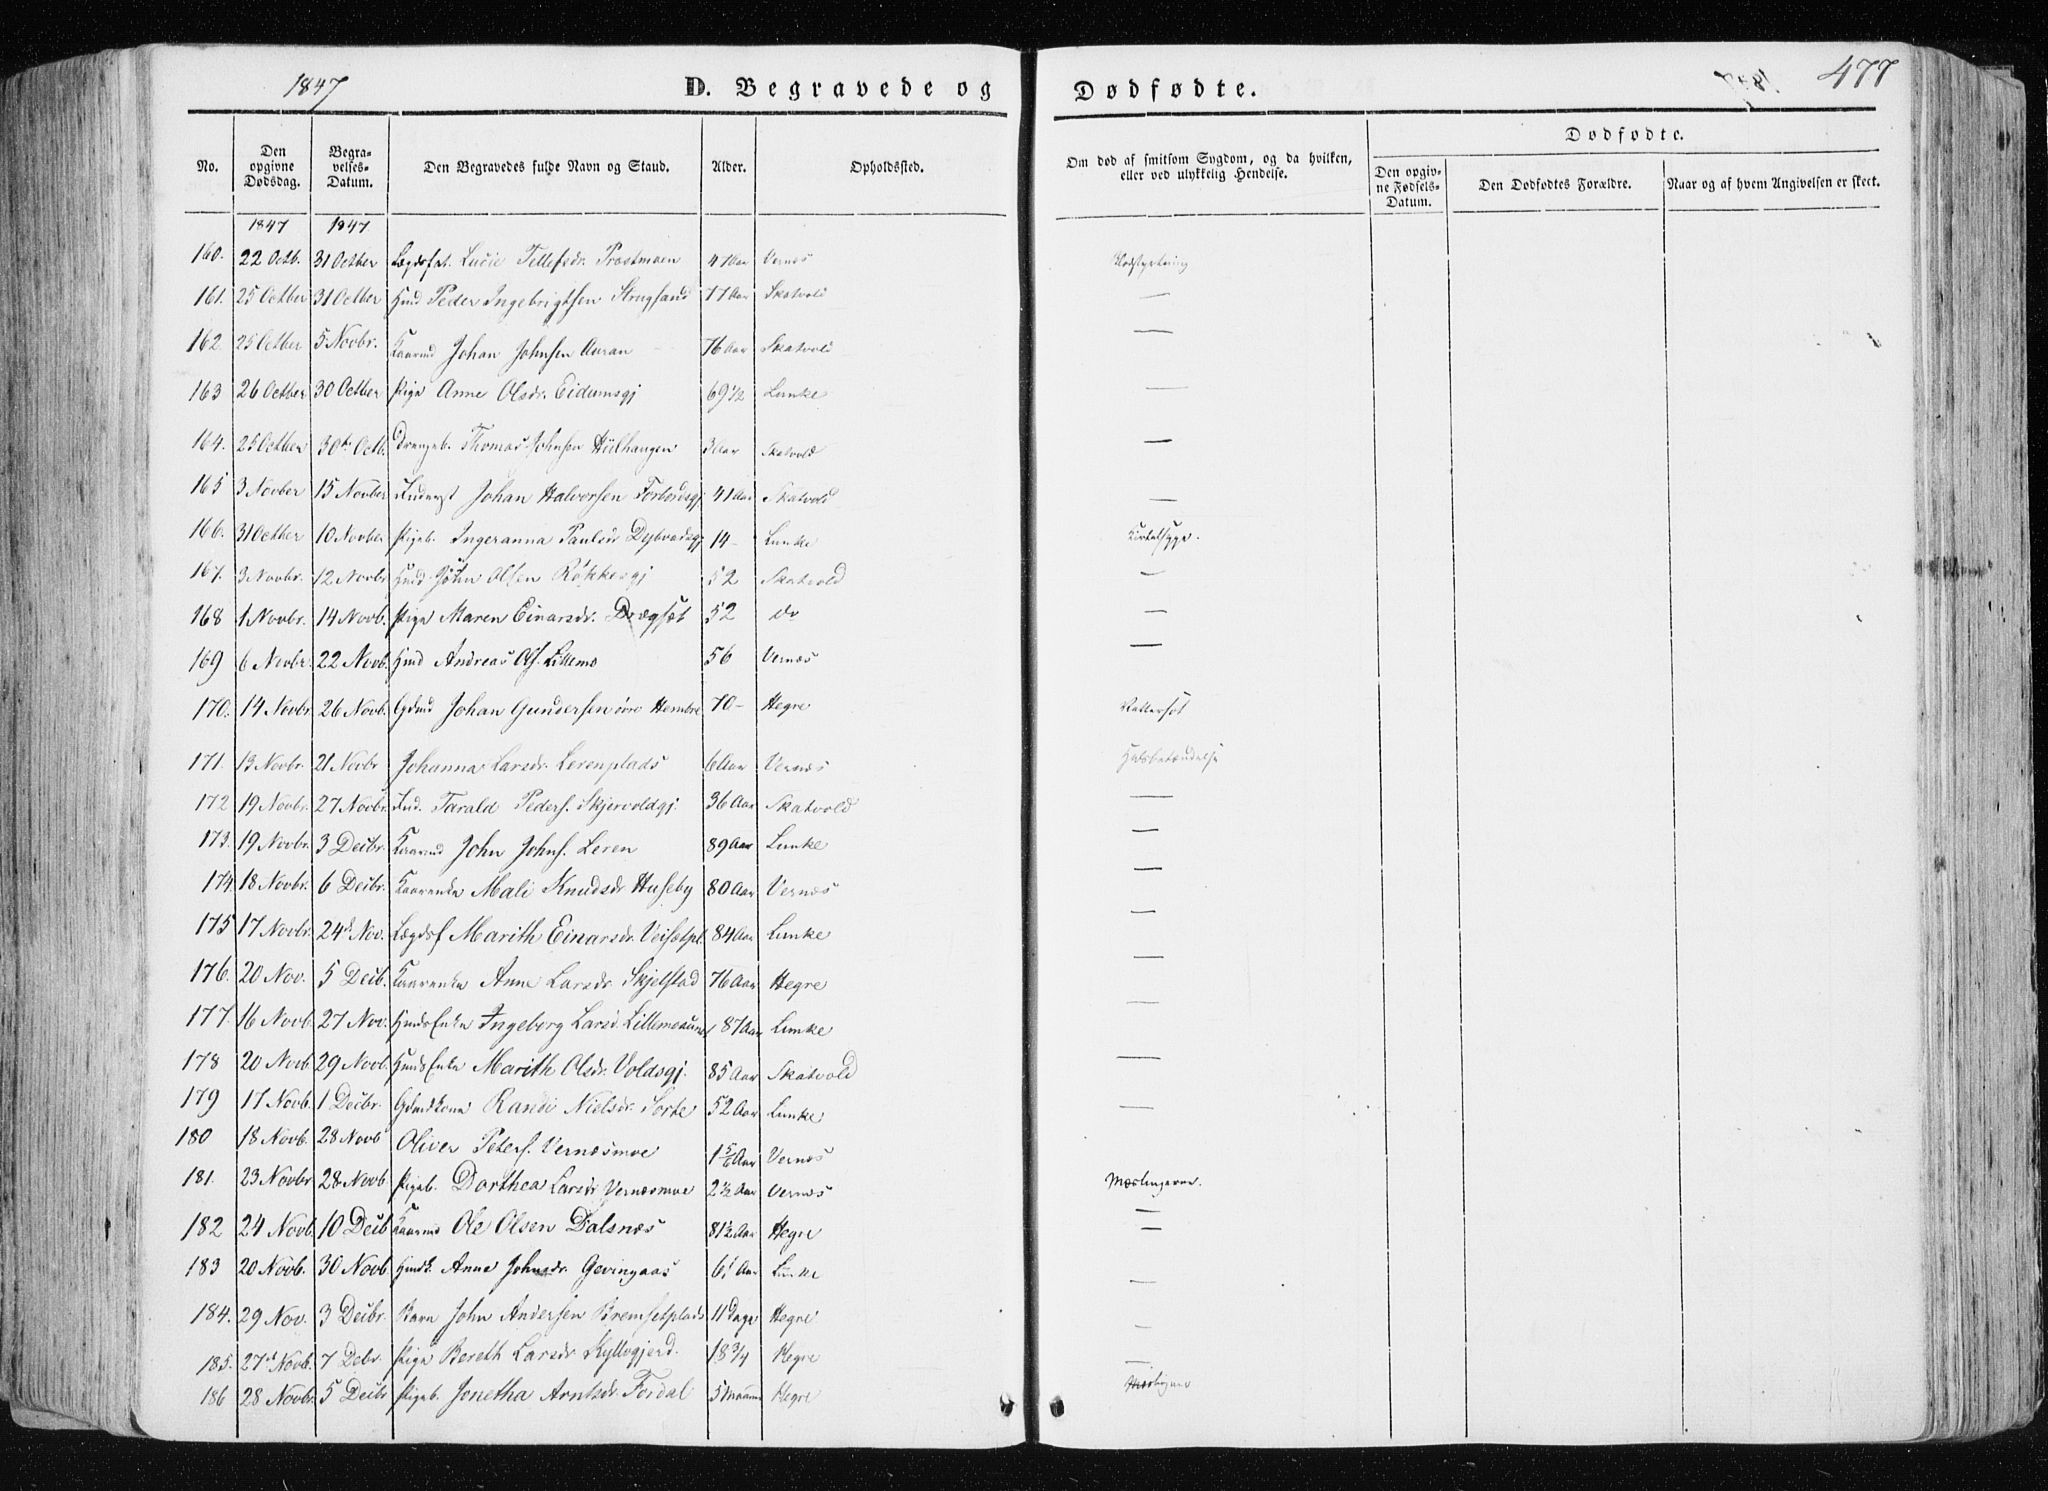 1847 D. Begravede og Dødfødte. 477
Dødfødte.
No. Den opgivne Dødsdag. Begravelses-Datum. Den Begravedes fulde Navn og Stand. Alder. Opholdssted. Om død af smitsom Sygdom, og da hvilken, eller ved ulykkelig Hendelse. Den opgivne Fødsels-Datum. Den Dødfødtes Forældre. Naar og af hvem Angivelsen er skeet.
1847 1847
160. 22 Octb. 31 Octber Lægdsfat. Lucie Tellefsdr. Præstmoen 47 Aar Vernæs
161. 25 Octber 31 Octber Hmd Peder Ingebrigtsen Strugsand 77 Aar Skatvold —
162 25 Octber 5 Novbr. Kaarmd Johan Johnsen Auran 76 Aar Skatvold —
163 26 Octber 30 Octber Pige Anne Olsdr. Eidumsgj 69 1/2 Lunke —
164. 25 Octber 30te Octb. Drengeb. Thomas Johnsen Hülhaugen 3 Aar Skatvold —
165 3 Novber 15 Novber Inderst Johan Halvorsen Forbordsgj 41 Aar Skatvold —
166. 31 Octber 10 Novber Pigeb. Ingeranna Paulsdr Dybvadsgj 14 - Lunke Kirtelsyge.
167. 3 Novbr. 12 Novbr Hmd John Olsen Røkkesgj 52 Skatvold —
168 1 Novbr. 14 Novb. Pige Maren Einarsdr. Drægset 52 do —
169 6 Novbr. 22 Novb. Hmd Andreas Ols. Lillemo 56 Vernæs —
170. 14 Novbr 26 Novb. Gdmd Johan Gundersen øvre Hembre 70 - Hegre Nattersot
171. 13 Novbr. 21 Novbr Johanna Larsdr. Lerenplads 6 Aar Vernæs Halsbetændelse
172 19 Novbr. 27 Novbr. Ind. Tarald Peders. Skjervoldgj. 36 Aar Skatvold —
173. 19 Novbr. 3 Decbr. Kaarmd John Johns. Leren 89 Aar Lunke —
174 18 Novbr. 6 Decbr. Kaarenke Mali Knudsdr Huseby 80 Aar Vernæs —
175 17 Novbr. 24d Nov. Lægdsf Marith Einarsdr. Veisetpl. 84 Aar Lunke —
176. 20 Nov. 5 Decb. Kaarenke Anne Larsdr Skjelstad 76 Aar Hegre —
177. 16 Novb. 27 Nov. Hmds Enke Ingeborg Larsd. Lillemoaune 87 Aar Lunke —
178 20 Novb. 29 Novb. Hmds Enke Marith Olsdr. Voldsgj. 85 Aar Skatvold —
179 17 Novb. 1 Decbr. Gdmdkone Randi Nielsdr. Sorte 52 Aar Lunke —
180 18 Novb. 28 Novb Oliver Peters. Vernæsmoe 1 5/6 Aar Vernæs
181. 23 Novbr 28 Novb Pigeb. Dorthea Larsdr Vernæsmoe 2 1/2 Aar Vernæs Mæslingerne.
182 24 Novb. 10 Decb Kaarmd Ole Olsen Dalsnæs 81 1/2 Aar Hegre —
183 20 Novb. 30 Novb Hmdk. Anne Johnsdr. Gevingaas 61 Aar Lunke —
184. 29 Nov. 3 Decbr. Barn John Andersen Bremsetplads 11 Dage Hegre —
185. 27d Novb. 7 Debr. Pige Bereth Larsdr Kyllogjerd. 18 3/4 Hegre —
186 28 Novbr. 5 Decbr Pigeb. Jonetha Arntsdr. Fordal 5 Maaned Hegre